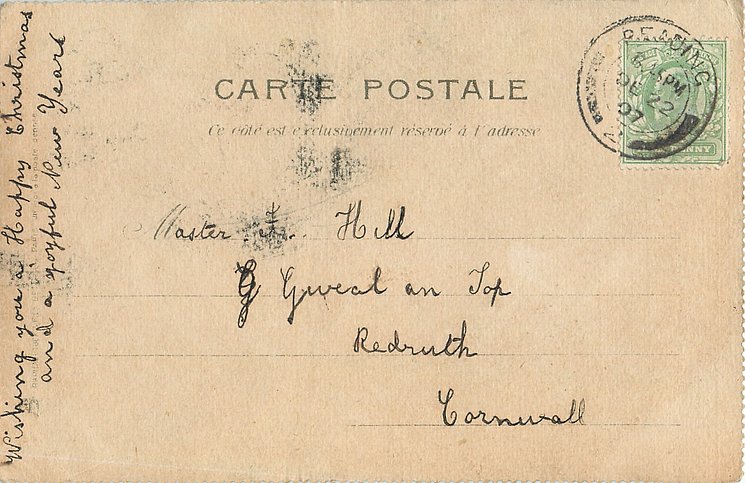 CARTE POSTALE
Ce côté est exclusivement réservé à l'adresse
READING
PM
DE 22
07
NNY
Master A. Hill
G Gweal an Top
Redruth
Cornwall
Wishing you a Happy Christmas
and a joyful New Year